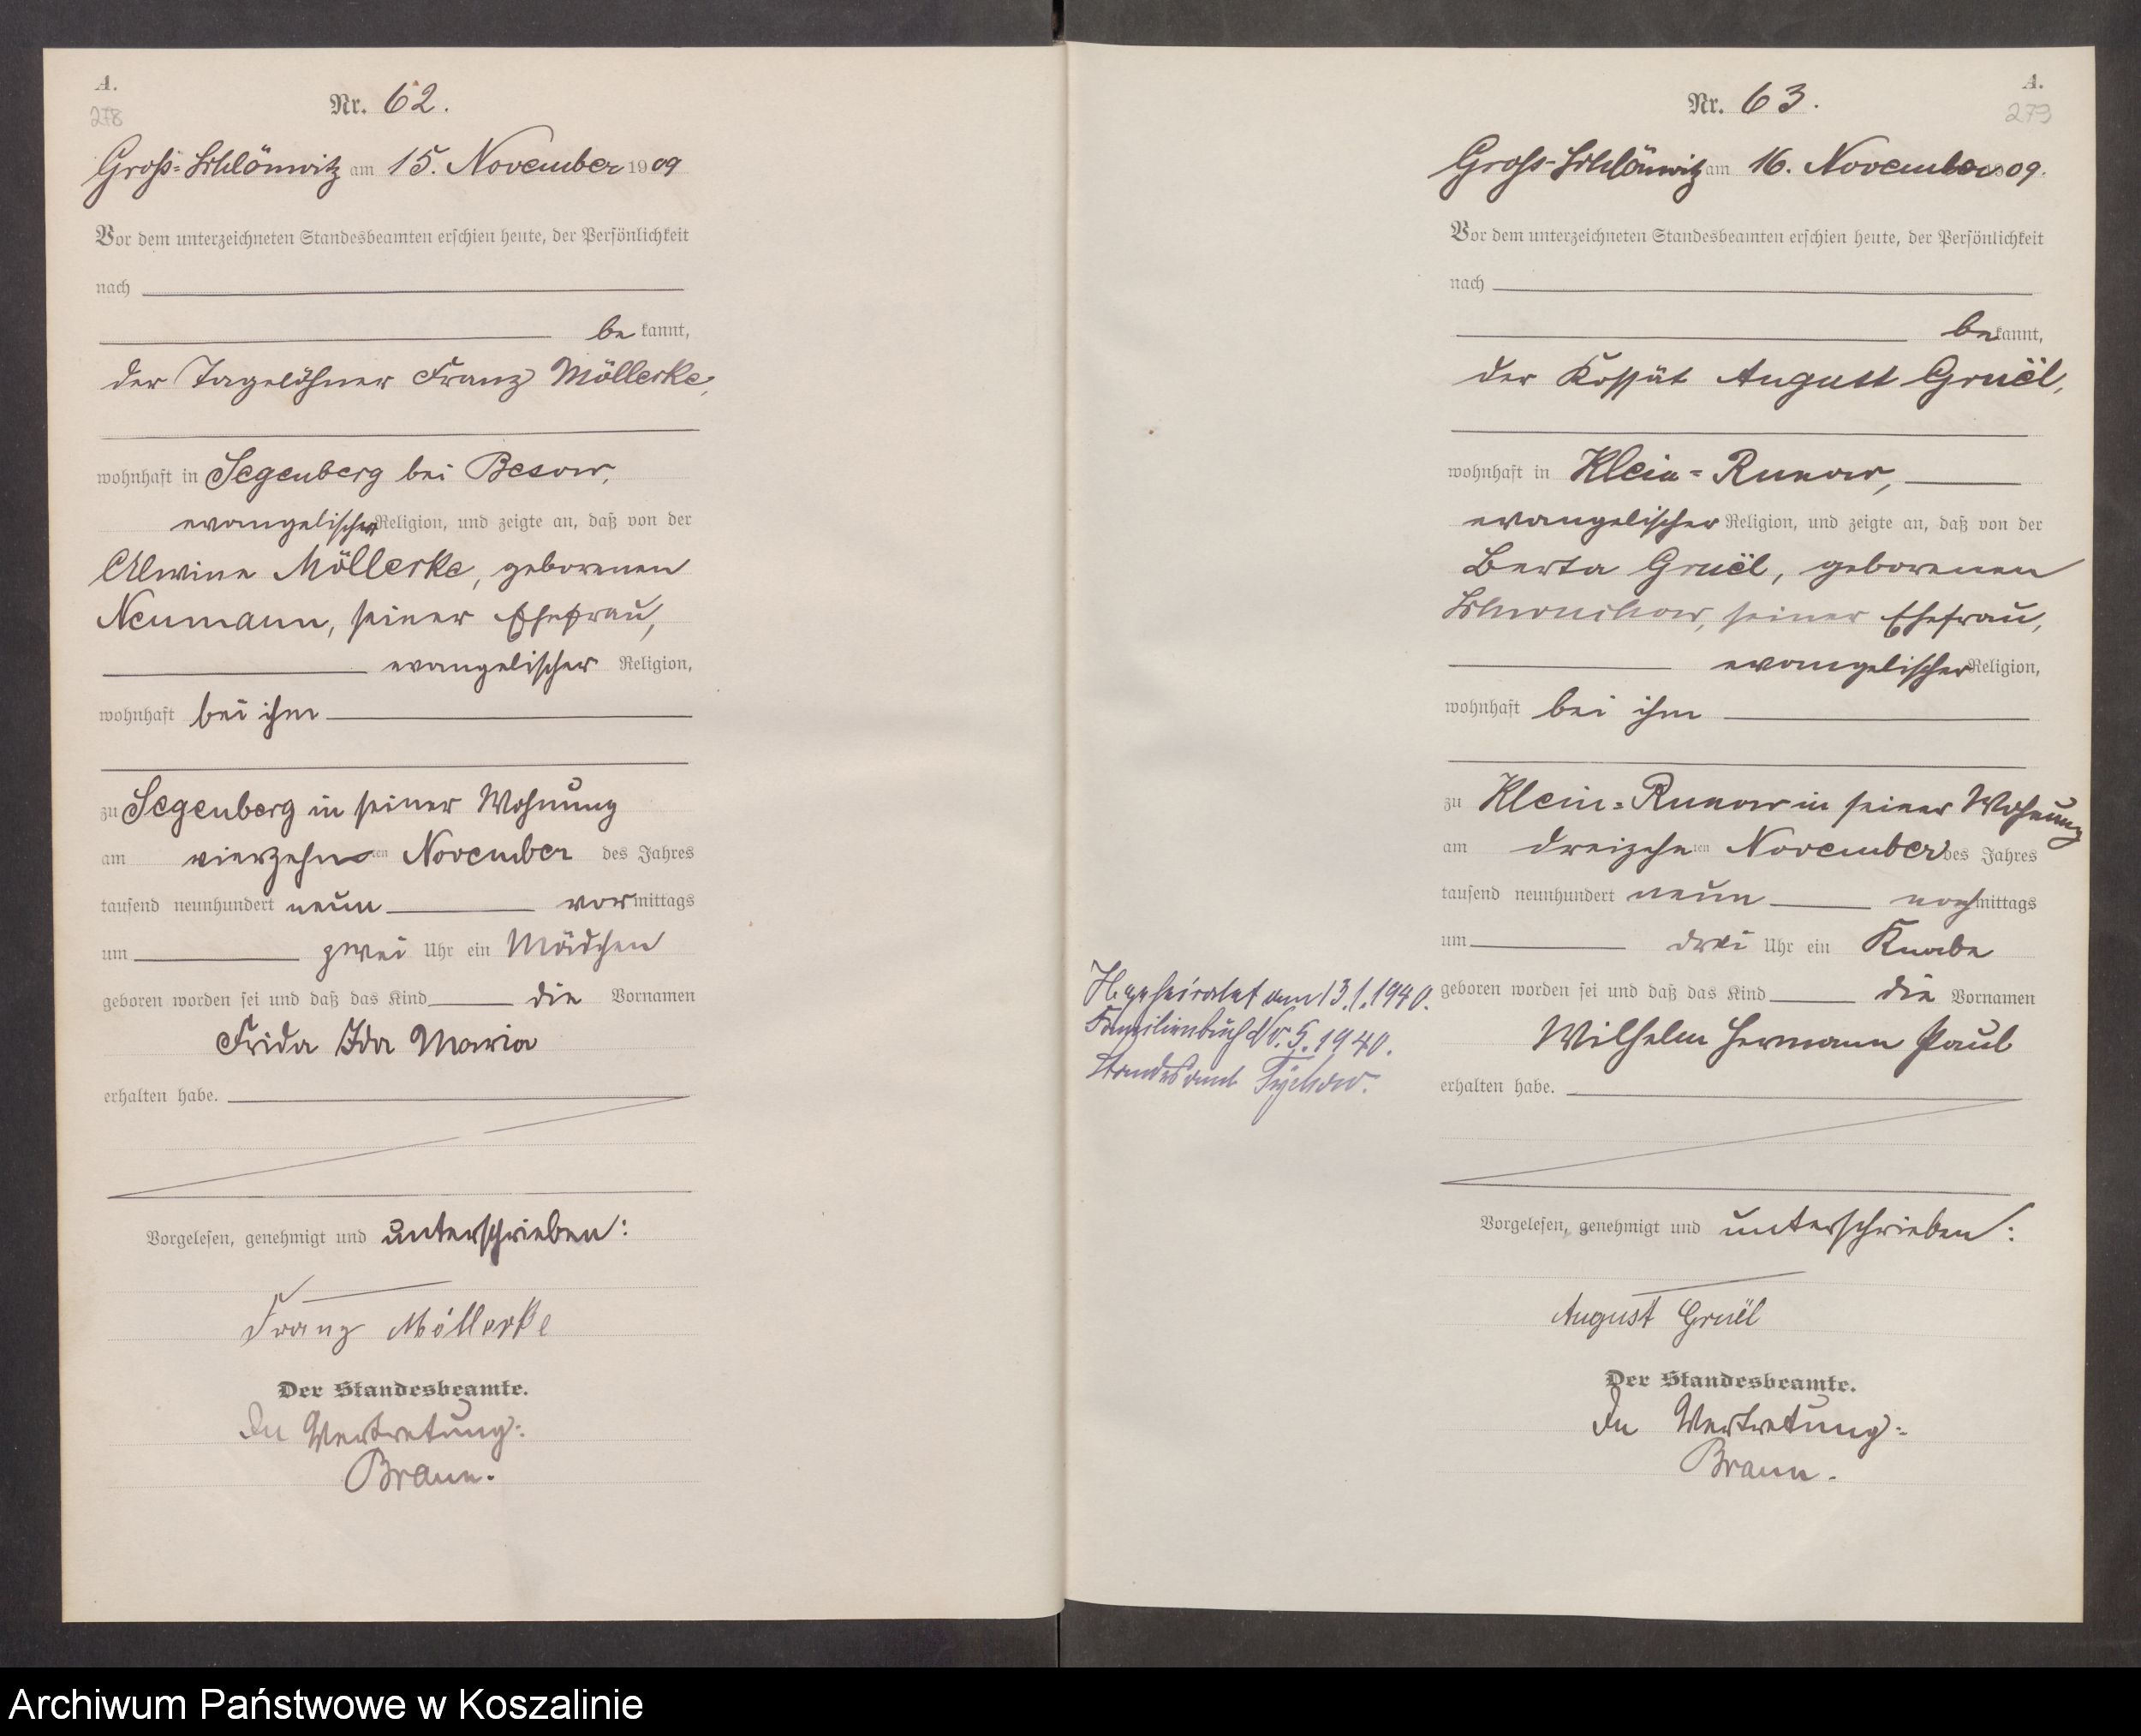 A.
278
Nr. 62.
Groß-Schlönwitz am 15. November 1909
Vor dem unterzeichneten Standesbeamten erschien heute, der Persönlichkeit
nach
be kannt,
der Tagelöhner Franz Möllerke,
wohnhaft in Segenberg bei Besow,
evangelischer Religion, und zeigte an, daß von der
Alwine Möllerke, geborenen
Neumann, seiner Ehefrau,
evangelischer Religion,
wohnhaft bei ihm
zu Segenberg in seiner Wohnung
am vierzehnten November des Jahres
tausend neunhundert neun vormittags
um zwei Uhr ein Mädchen
geboren worden sei und daß das Kind die Vornamen
Frida Ida Maria
erhalten habe.
Vorgelesen, genehmigt und unterschrieben:
Franz Möllerke
Der Standesbeamte.
In Vertretung:
Braun.
A.
279
Nr. 63.
Groß-Schlönwitz am 16. November 1909.
Vor dem unterzeichneten Standesbeamten erschien heute, der Persönlichkeit
nach
bekannt,
der Kossät August Gruël,
wohnhaft in Klein-Runow,
evangelischer Religion, und zeigte an, daß von der
Berta Gruël, geborenen
seiner Ehefrau,
evangelischer Religion,
wohnhaft bei ihm
zu Klein-Runow in seiner Wohnung
am dreizehnten November des Jahres
tausend neunhundert neun nachmittags
um drei Uhr ein Knabe
geboren worden sei und daß das Kind die Vornamen
Wilhelm Hermann Paul
erhalten habe.
Vorgelesen, genehmigt und unterschrieben:
August Gruël
Der Standesbeamte.
In Vertretung:
Braun.
geheiratet am 13.1.1940.
Familienbuch Nr. 5.1940.
Standesamt Tychow.
Archiwum Państwowe w Koszalinie